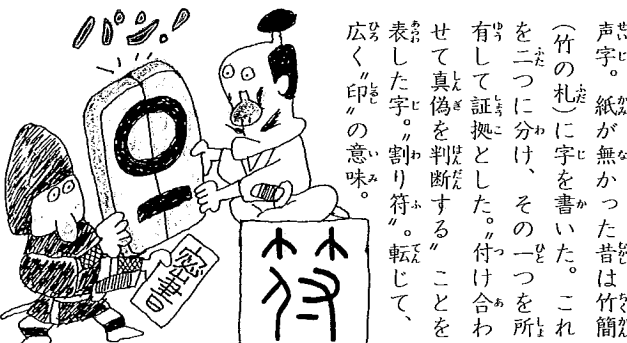 声字。紙が無かった昔は竹簡
(竹の札)に字を書いた。これ
を二つに分け、その一つを所
有して証拠とした。〝付け合わ
せて真偽を判断する〟ことを
表した字。〝割り符〟。転じて、
広く〝印〟の意味。
パン!
密書
符